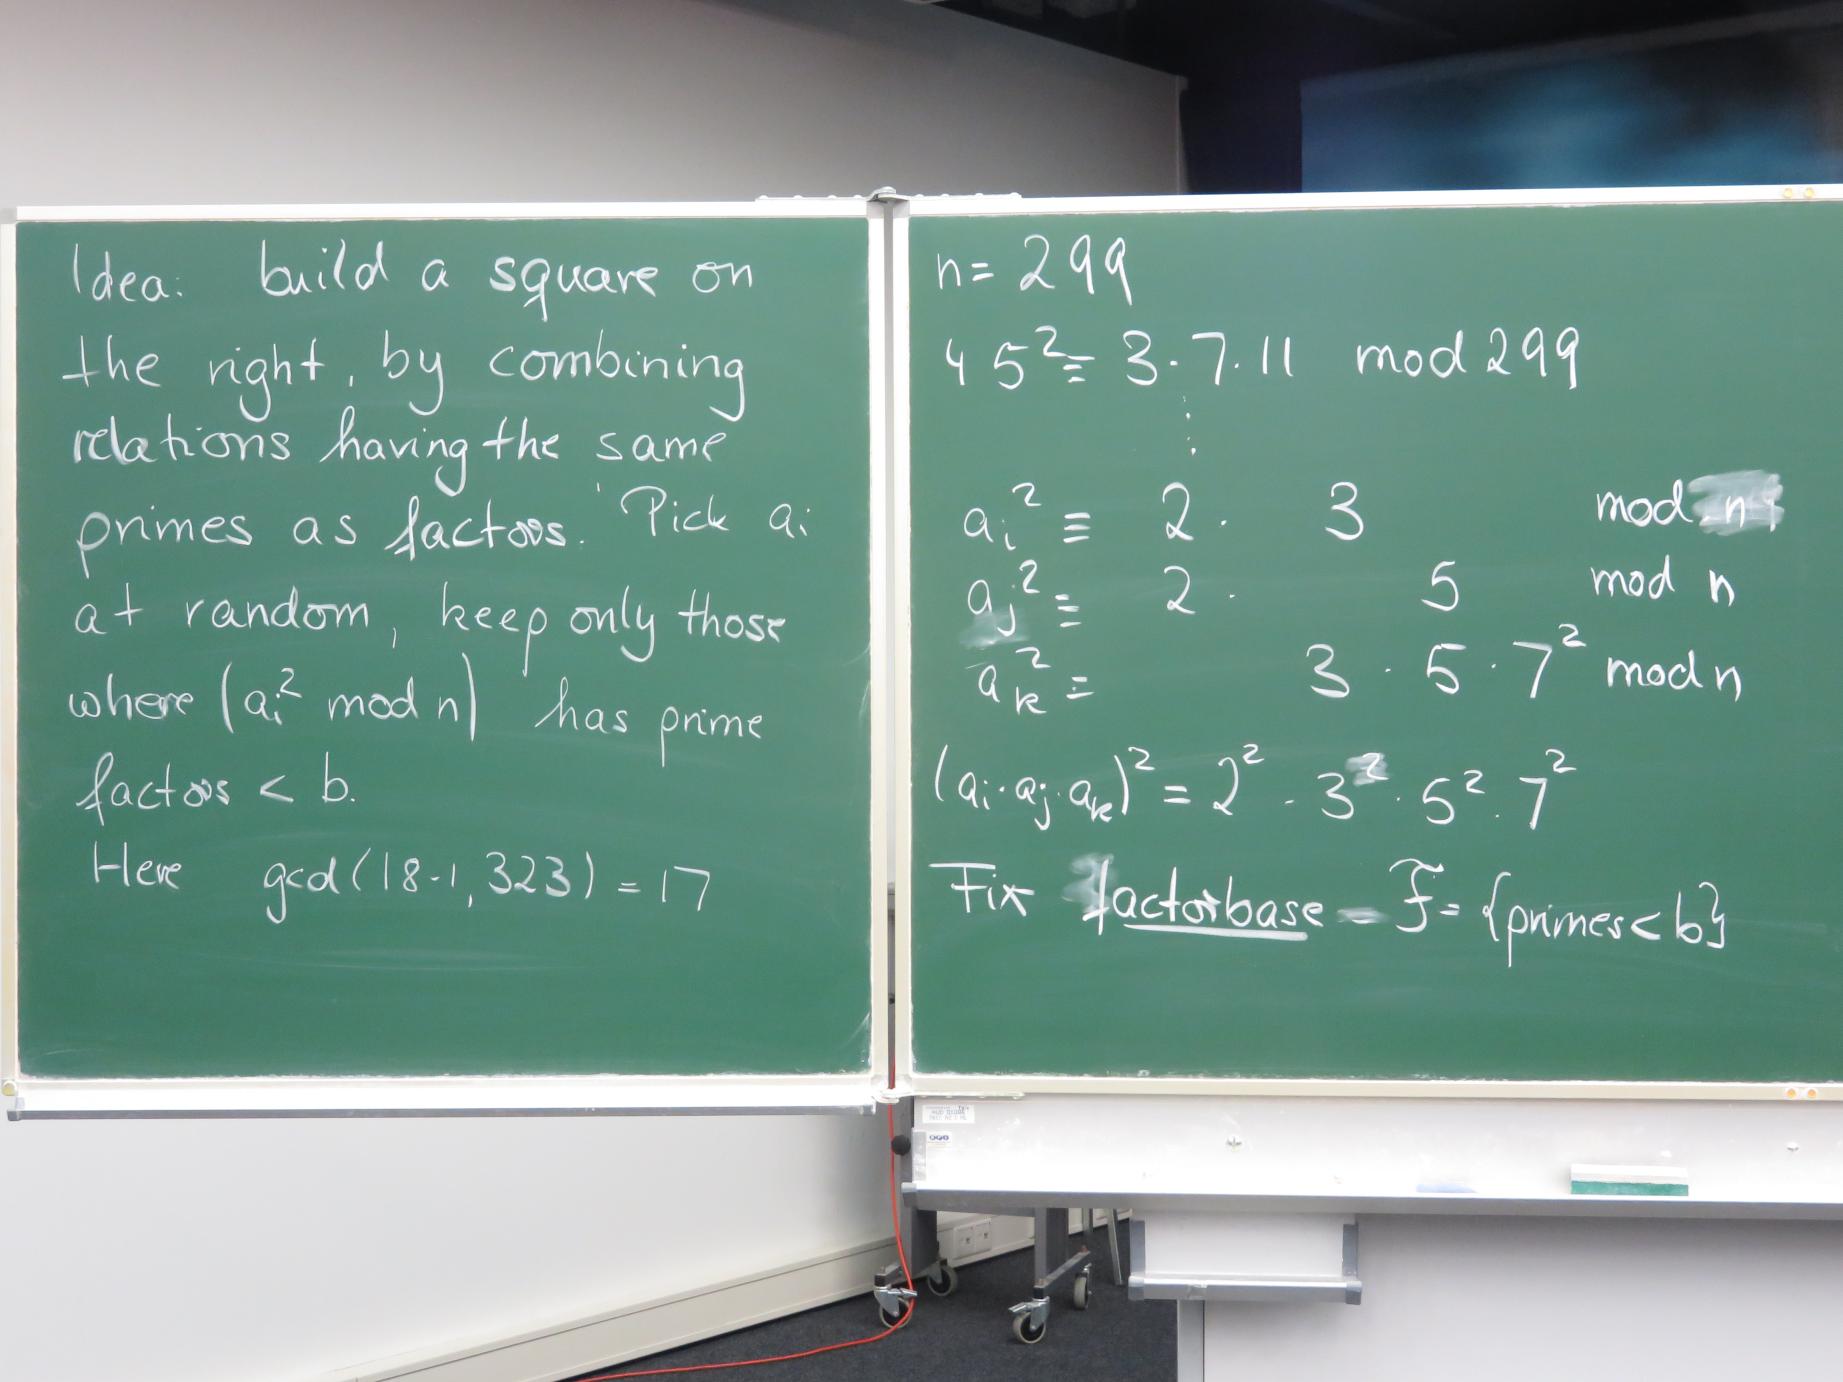 Idea: build a square on
the right, by combining
relations having the same
primes as factors. Pick aᵢ
at random, keep only those
where (aᵢ² mod n) has prime
factors < b.
Here gcd(18-1, 323) = 17
n = 299
45² ≡ 3·7·11 mod 299
⋮
aᵢ² ≡ 2· 3 mod n
aⱼ² ≡ 2· 5 mod n
aₖ² = 3·5·7² mod n
(aᵢ·aⱼ·aₖ)² = 2²·3²·5²·7²
Fix factorbase - F = {primes < b}